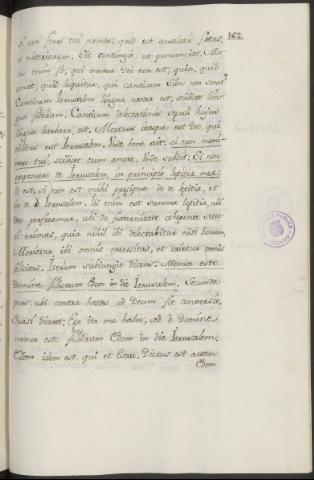 si non fuero tui memor; quid est consolatii factus,
et misericors. Sic contingit, ut pronunciat, Mu-
tus enim sit, qui memor Dei non est; quia, quid
sonat, quid loquitur, qui canticum Sion non sonat?
Canticum Jerusalem lingua nostra est, scilicet lin-
gua fidelium. Canticum delectationis seculi hujus
lingua barbara est. Mortuus itaque est Deo, qui
oblitus est Jerusalem. Unde bene ait: si non memi-
nero tui, scilicet cum amore. Unde subdit: Si non
proposuero te Jerusalem, in principio letitia mea
id est, si non est mihi præcipua de te letitia, et
in te d. Jerusalem. Ibi enim est summa letitia, ubi
Deo perfruemur, ubi de fraternitate coherente secu-
ri erimus, quia nihil ibi delectabitur nisi bonum.
Morietur ibi omnis necesitas, et orietur omnis
felicitas. Iterum subiungit dicens: Memor esto
Domine filiorum Edom in die Jerusalem. Secunda
pars, ubi contra hostes ad Deum fit conversio.
Quasi diceret: Ego ita me habeo; sed d. Domine
memor esto filiorum Edom in die Jerusalem.
Edom idem est, qui et Esau. Dictus est autem
Edom
162